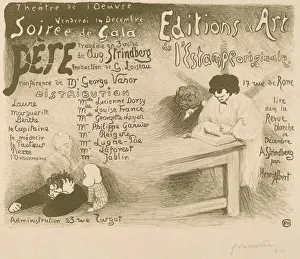 Théatre de l'Oeuvre
Vendredi 14 Décembre
Soirée de Gala
PÈRE
tragédie en 3 actes
de Aug Strindberg
traduction de G. Loiseau
Conférence de Mr George Vanor
DISTRIBUTION
Laure Mme Lucienne Dorsy
Marguerite Mme Louise France
Berthe Mme Georgette Loyer
le Capitaine Mr Philippe Garnier
le médecin Mr
le Pasteur Mr Lugné-Poe
Pierre Mr
l'Ordonnance Mr Jablin
Administration 23 rue Turgot
Editions d'Art
de l'Estampe originale
17 rue de Rome
lire dans
la Revue
blanche
de
Décembre
A. Strindberg
par
Henri Albert